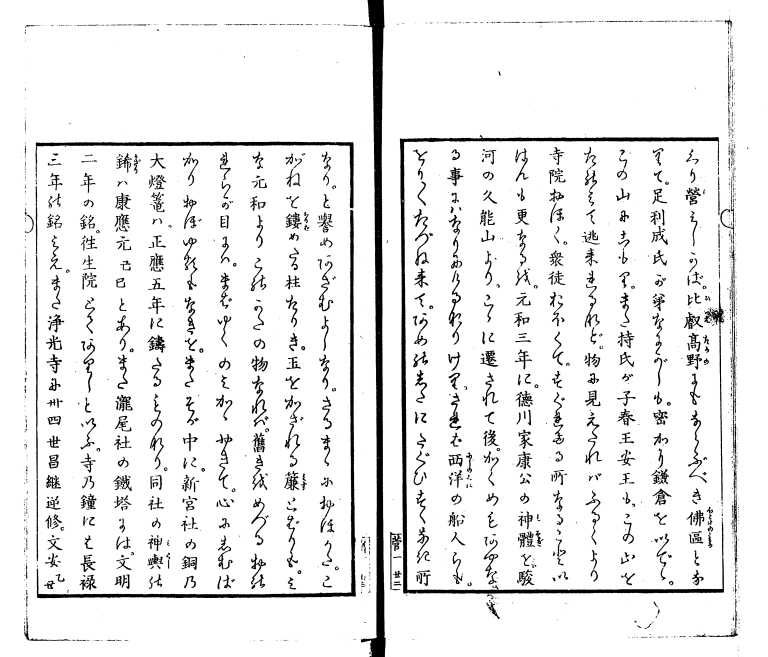 とり營みしかば。比叡高野にもならぶべき佛區とな
りて。足利成氏が弟なりしも。密かり鎌倉を出でし。
この山にこもり。また持氏が子春王安王も。この山を
たのみて逃来れるなど。物に見えたれバふるくより
寺院おほく。衆徒も不くて。すぐれたる所なること以
はんも更なるを。元和三年に。徳川家康公の神體を。駿
河の久能山より。こゝに遷されて後。かくめもあやな
る事にハなりにけるなりけり。されば西洋の船人らも。
とりくたづね来て。あめの志たにたぐひすくなき所
なり。と譽めあざむよしなり。さるまゝにおほかた。こ
がねを鏤めたる柱なりき。玉をかざれる簾とばりも。み
な元和よりこのかたの物なれば。舊きをめづる物の
れらが目には。まばゆくのみかゞやきて。心にしむば
かりおぼゆるもなきを。またそが中に。新宮社の銅乃
大燈篭ハ。正應五年に鑄たるものなり。同社の神輿の
錺ハ康應元己巳とあり。また瀧尾社の鐵塔には。文明
二年の銘。徃生院とくありしと以ふ。寺乃鐘にも長禄
三年の銘みえ。また浄光寺に卅四世昌継逆修。文安乙丑
菅一 廿二